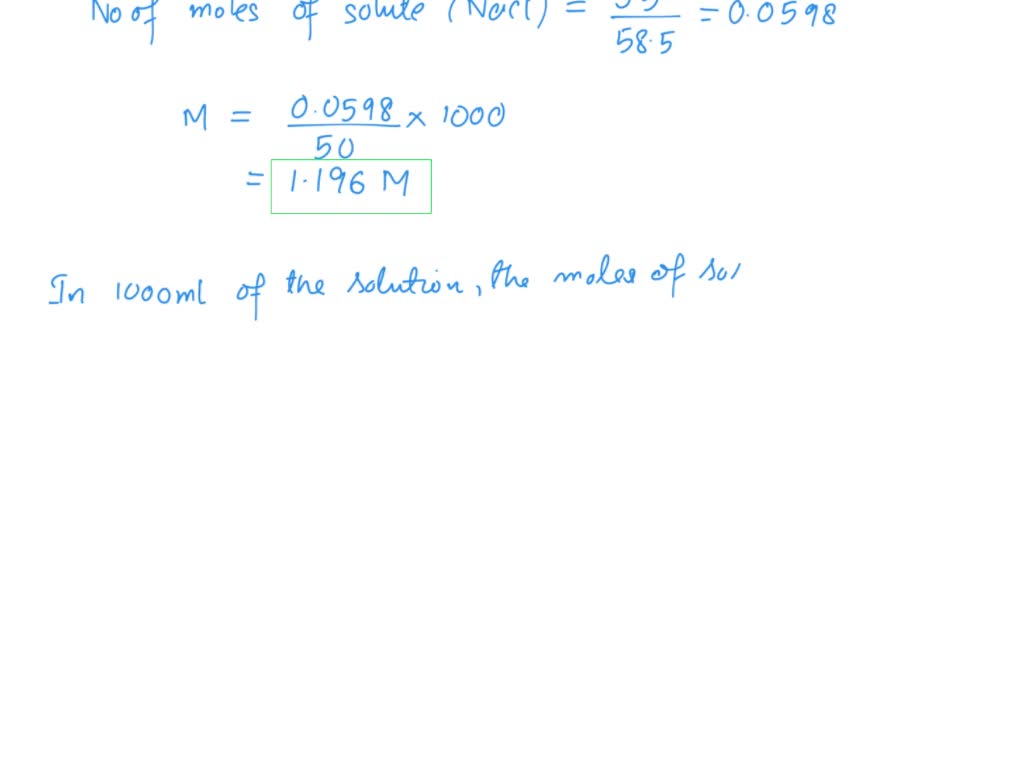 No of moles of solute (NaCl) = / 58.5 = 0.0598
M = 0.0598 / 50 × 1000
= 1.196 M
In 1000ml of the solution, the moles of sol